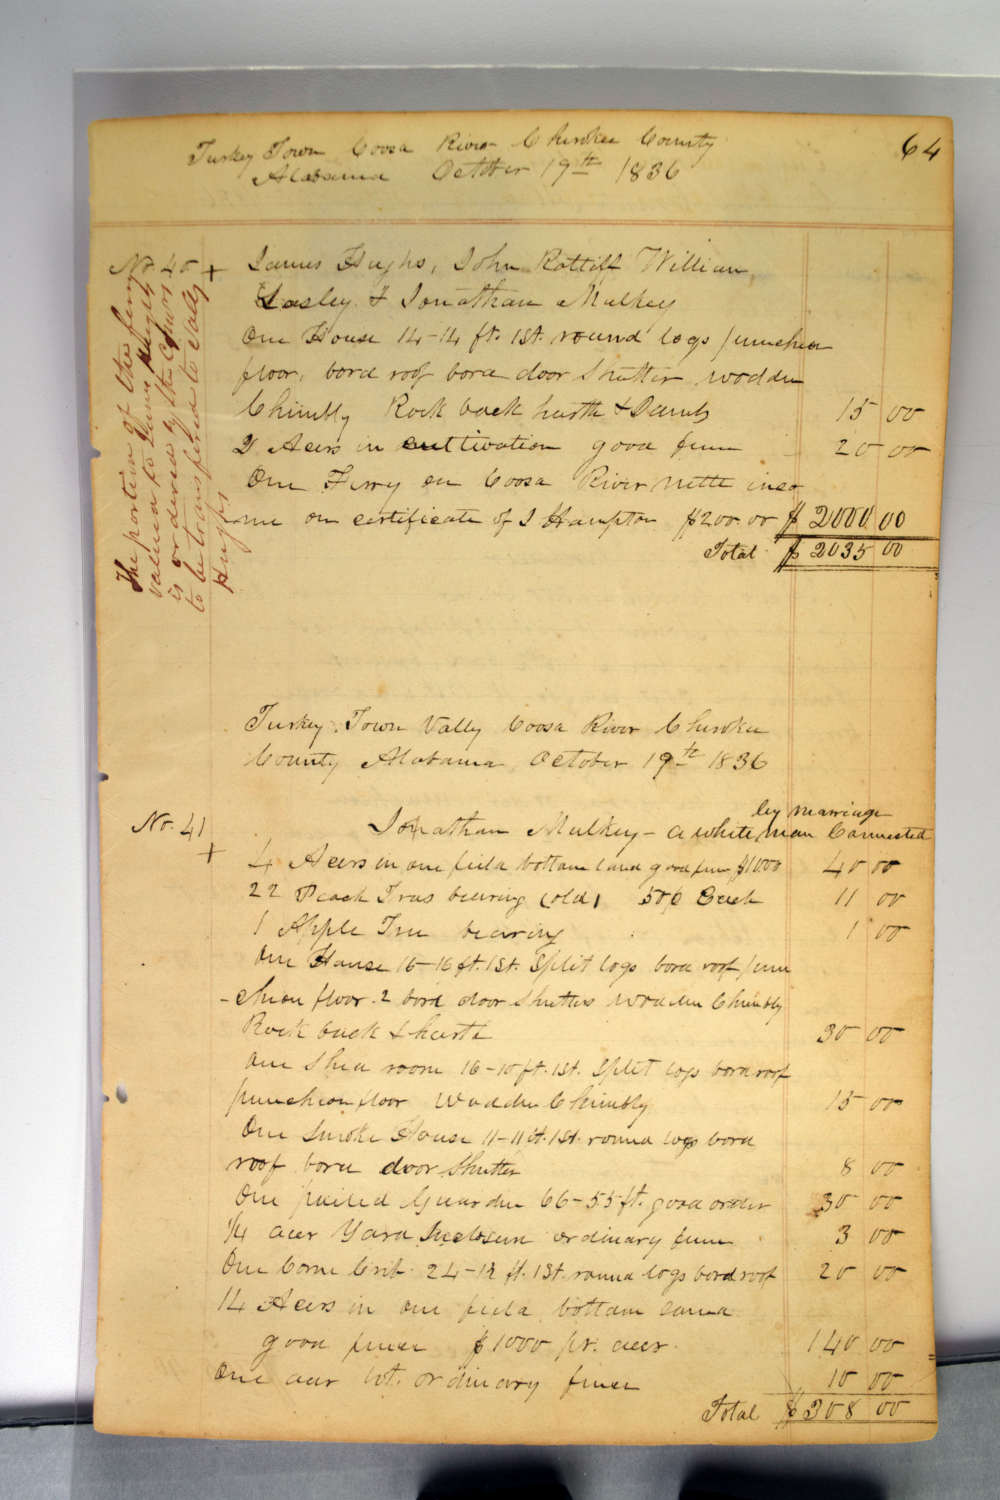 64
Turkey Town Coosa River Cherokee County
Alabama October 19th 1836
No. 40 + James Hughs, John Ratliff William
Lasley & Jonathan Mulkey
One House 14-14 ft. 1st. round logs puncheon
floor, bord roof bord door Shutter wooden
Chimbly Rock back harth & Jambs 15 00
2 Acers in cultivation good fence 20 00
One Ferry on Coosa River nette inco
me on certificate of J Hampton $200.00 $ 2000 00
Total $ 2035 00
The portion of the ferry
valued to James Hughs
is ordered by the
to be transfered to Sally
Hughs
Turkey Town Vally Coosa River Cherokee
County Alabama October 19th 1836
No. 41 + Jonathan Mulkey - a white man Connected
by marriage
4 Acers in one field bottom land good fence $10.00 40 00
22 Peach Trees bearing (old) 50¢ Each 11 00
1 Apple Tree bearing 1 00
One House 16-16 ft. 1st. Split logs bord roof pun
-cheon floor. 2 bord door Shutters wooden Chimbly
Rock back & harth 30 00
One Shed room 16-10 ft. 1st. Split logs bord roof
puncheon floor Wooden Chimbly 15 00
One Smoke House 11-11 ft. 1st. round logs bord
roof bord door Shutter 8 00
One pailed Guarden 66-55 ft. good order 30 00
1/4 acer Yard Inclosure ordinary fence 3 00
One Corne Crib 24-12 ft. 1st. round logs bord roof 20 00
14 Acers in one field bottom land
good fence $1000 pr. acer. 140 00
One acer lot. ordinary fence 10 00
Total $ 308 00